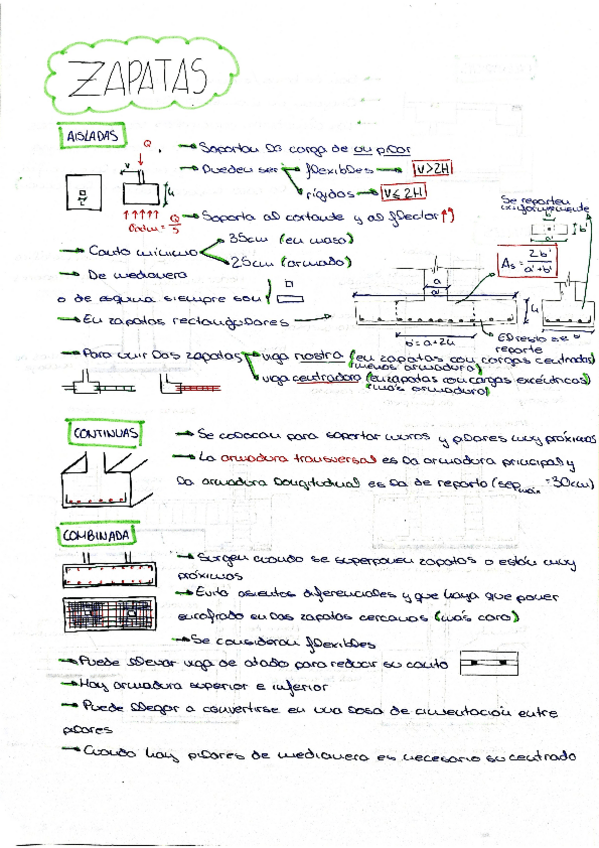 ZAPATAS
AISLADAS
Q
→ Soportan la carga de un pilar
→ Pueden ser → flexibles → V>2H
→ rígidas → V≤2H
v
h
σadm = Q/S
→ Soporta al cortante y al flector ↑↑
Se reparten uniformemente
b'
b'
→ Canto mínimo → 35cm (en masa)
→ 25cm (armado)
As = 2b' / a'+b'
→ De medianera
o de esquina siempre son
a
a'
h
→ En zapatas rectangulares →
b' = a+2h
El resto se reporte
b'
→ Para unir las zapatas → viga riostra (en zapatas con cargas centradas)
(menos armadura)
viga centradora (en zapatas con cargas excéntricas)
(más armadura)
CONTINUAS
→ Se colocan para soportar muros y pilares muy próximos
→ La armadura transversal es la armadura principal y
la armadura longitudinal es la de reparto (sep máx = 30cm)
COMBINADA
→ Surgen cuando se superponen zapatas o están muy
próximos
→ Evita asientos diferenciales y que haya que poner
encofrado en las zapatas cercanas (más caro)
→ Se consideran flexibles
→ Puede llevar viga de atado para reducir su canto
→ Hay armadura superior e inferior
→ Puede llegar a convertirse en una losa de cimentación entre
pilares
→ Cuando hay pilares de medianera es necesario su centrado